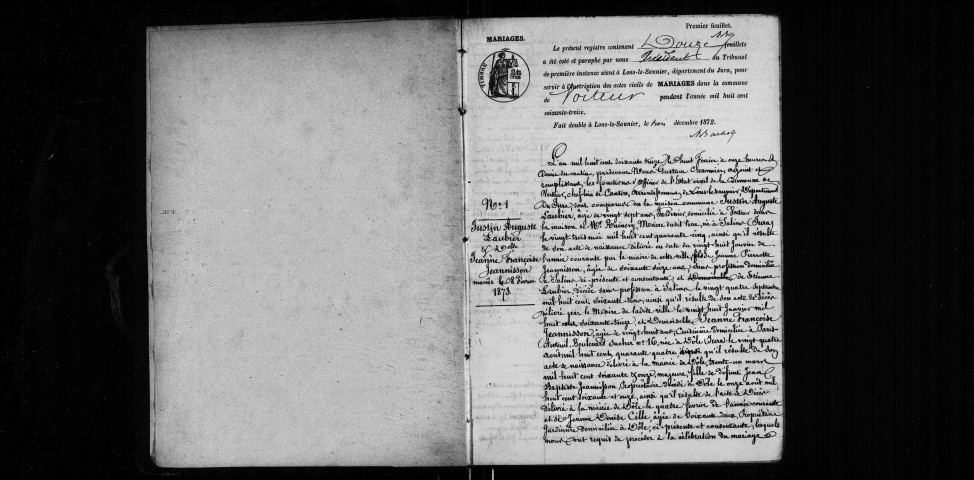 Premier feuillet.
MARIAGES.
Le présent registre contenant Douze feuillets
a été coté et paraphé par nous Président du Tribunal
de première instance séant à Lons-le-Saunier, département du Jura, pour
servir à l'inscription des actes civils de MARIAGES dans la commune
de Voiteur pendant l'année mil huit cent
soixante-treize.
Fait double à Lons-le-Saunier, le décembre 1872.
TIMBRE
N° 1
Justin Auguste
Laubier
& Delle
Jeanne Françoise
Jeannisson
mariés le 8 Février
1873
L'an mil huit cent soixante treize, le huit Février à onze heures et
demie du matin, pardevant Nous Gustave adjoint et
remplissant les fonctions d'officier de l'état civil de la Commune de
Voiteur, chef-lieu de Canton, arrondissement de Lons-le-Saunier, Département
du Jura, sont comparus en la maison commune Justin Auguste
Laubier, âgé de vingt sept ans, domicilié à Voiteur dans
la maison de Mr Maire dudit lieu, né à Salins (Jura)
le vingt trois mai mil huit cent quarante cinq, ainsi qu'il résulte
de son acte de naissance délivré en date du vingt huit Janvier de
l'année courante par le maire de cette ville, fils de Jeanne Pierrette
Jeannisson, âgée de soixante seize ans, sans profession domiciliée
à Salins ci présente et consentante et de Etienne
Laubier, décédé sans profession à Salins le vingt quatre Septembre
mil huit cent soixante ainsi qu'il résulte de son acte de décès
délivré par le Maire de ladite ville le vingt huit Janvier mil
huit cent soixante-treize, et Demoiselle Jeanne Françoise
Jeannisson, âgée de vingt huit ans, Cuisinière domiciliée à Paris-
Auteuil Boulevard Suchet n° 16, née à Dôle (Jura) le vingt quatre
août mil huit cent quarante quatre ainsi qu'il résulte de son
acte de naissance délivré à la mairie de Dôle, trente-un mars
mil huit cent soixante douze, majeure, fille de défunt Jean
Baptiste Jeannisson, Propriétaire décédé à Dôle le onze août mil
huit cent soixante et onze, ainsi qu'il résulte de l'acte de décès
délivré à la mairie de Dôle le quatre février de l'année courante
et de Jeanne Denise Cille âgée de soixante deux, Propriétaire
Jardinière domiciliée à Dôle, ci présente et consentante, lesquels
nous ont requis de procéder à la célébration du mariage